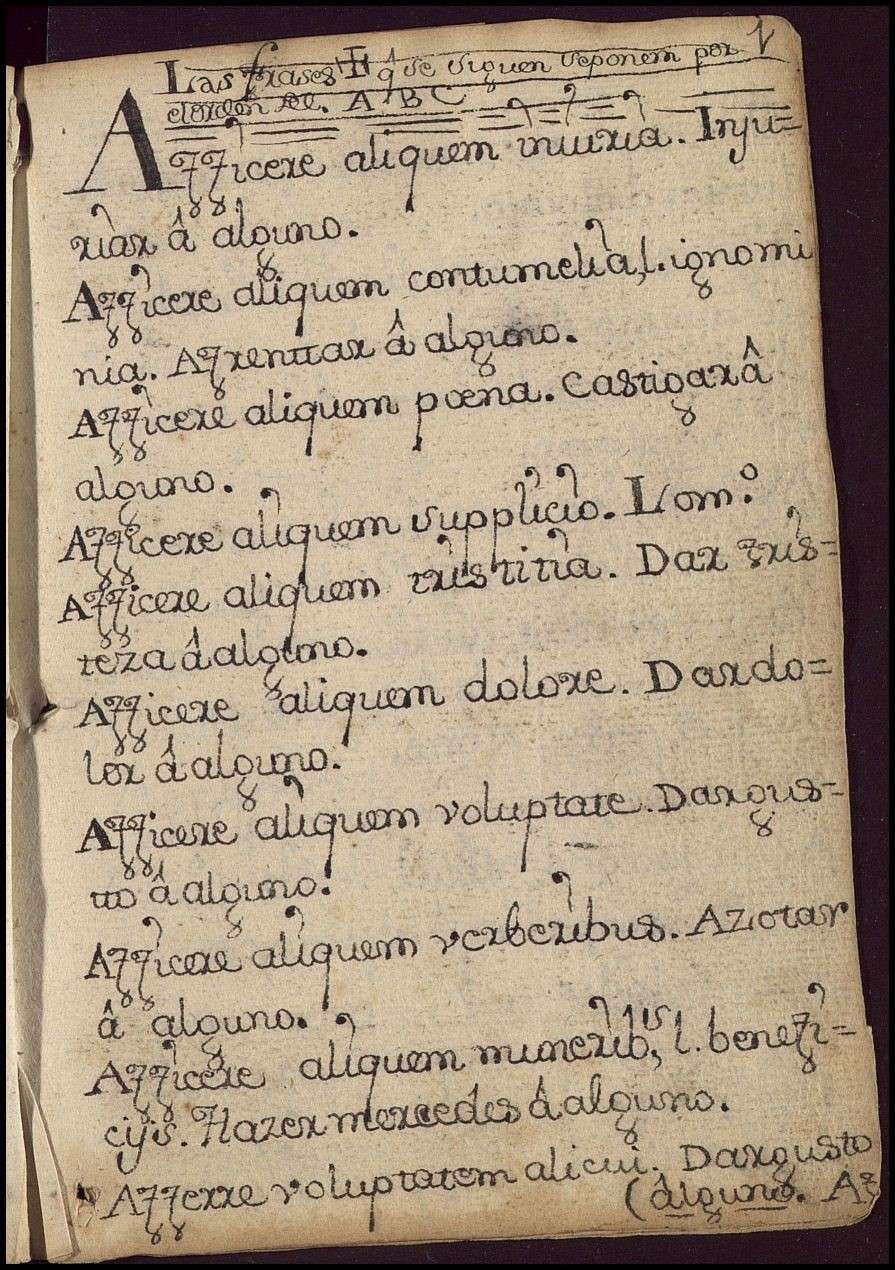 1
Las frases q̂ se siguen se ponem por
el orden del A B C
Afficere aliquem iniuria. Inju=
riar â alguno.
Afficere aliquem contumelia, l. ignomi
nia. Afrenttar â alguno.
Afficere aliquem pœna. Castigar â
alguno.
Afficere aliquem supplicio. Lo m.º
Afficere aliquem tristitia. Dar tris=
teza â alguno.
Afficere aliquem dolore. Dar do=
lor â alguno.
Afficere aliquem voluptate. Dar gus=
tto â alguno.
Afficere aliquem verberibus. Azotar
â alguno.
Afficere aliquem munerib,ˢ l. benefi=
cijs. Hazer mercedes â alguno.
Afferre voluptatem alicui. Dar gusto
(âlguno. Af